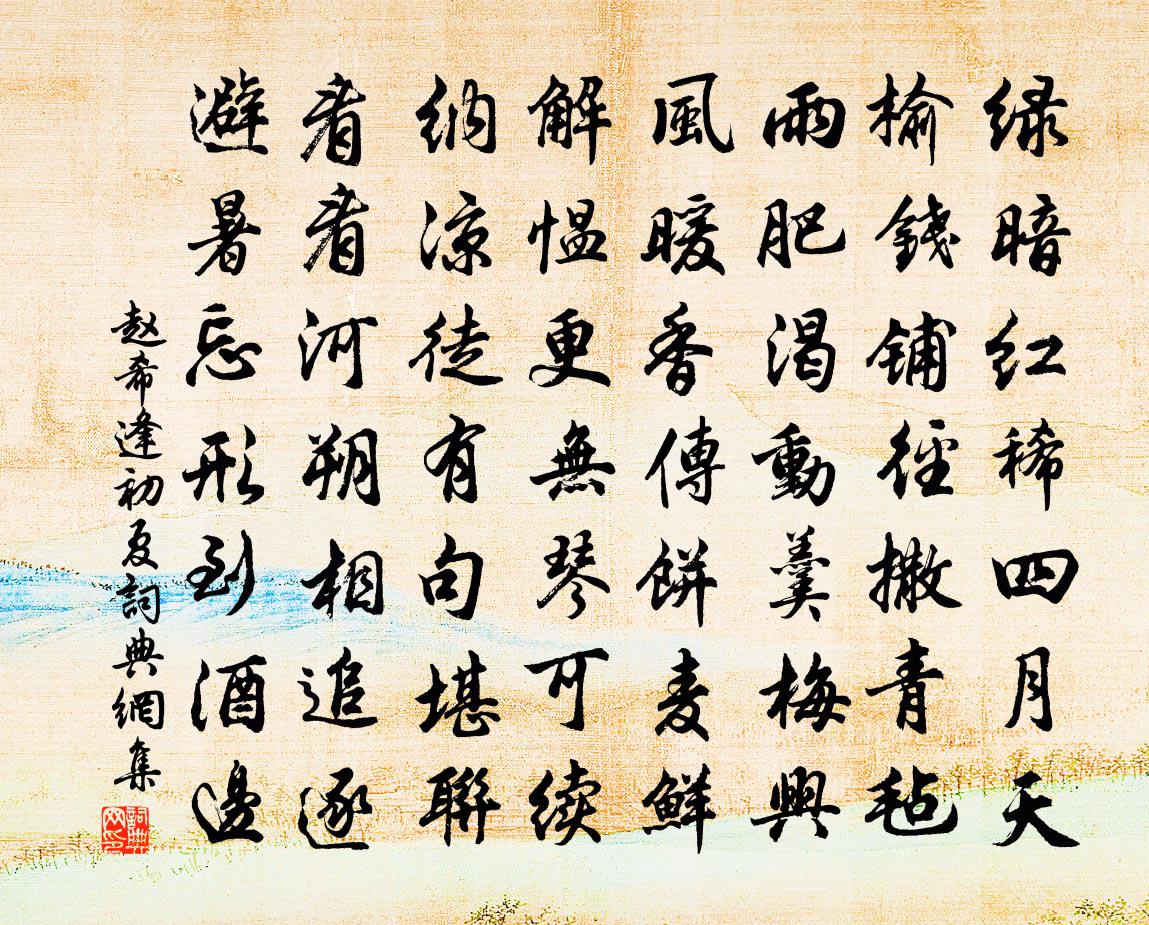 绿暗红稀四月天
榆錢铺径撒青毡
雨肥渴動羹梅興
風暖香傳餅麦鮮
解愠更無琴可续
納凉徒有句堪聯
看看河朔相追逐
避暑忘形到酒邊
赵希逢初夏詞典網集
詞典网印